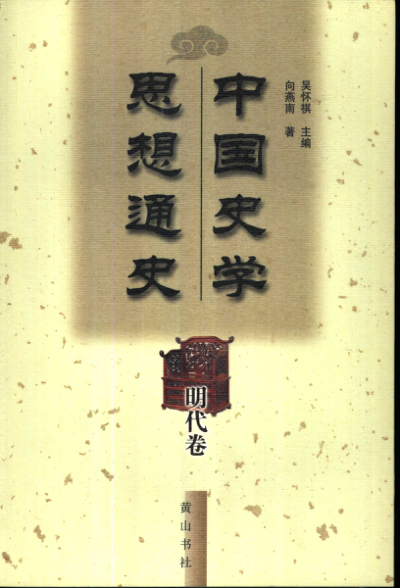 中国史学
思想通史
吴怀祺 主编
向燕南 著
明代卷
黄山书社